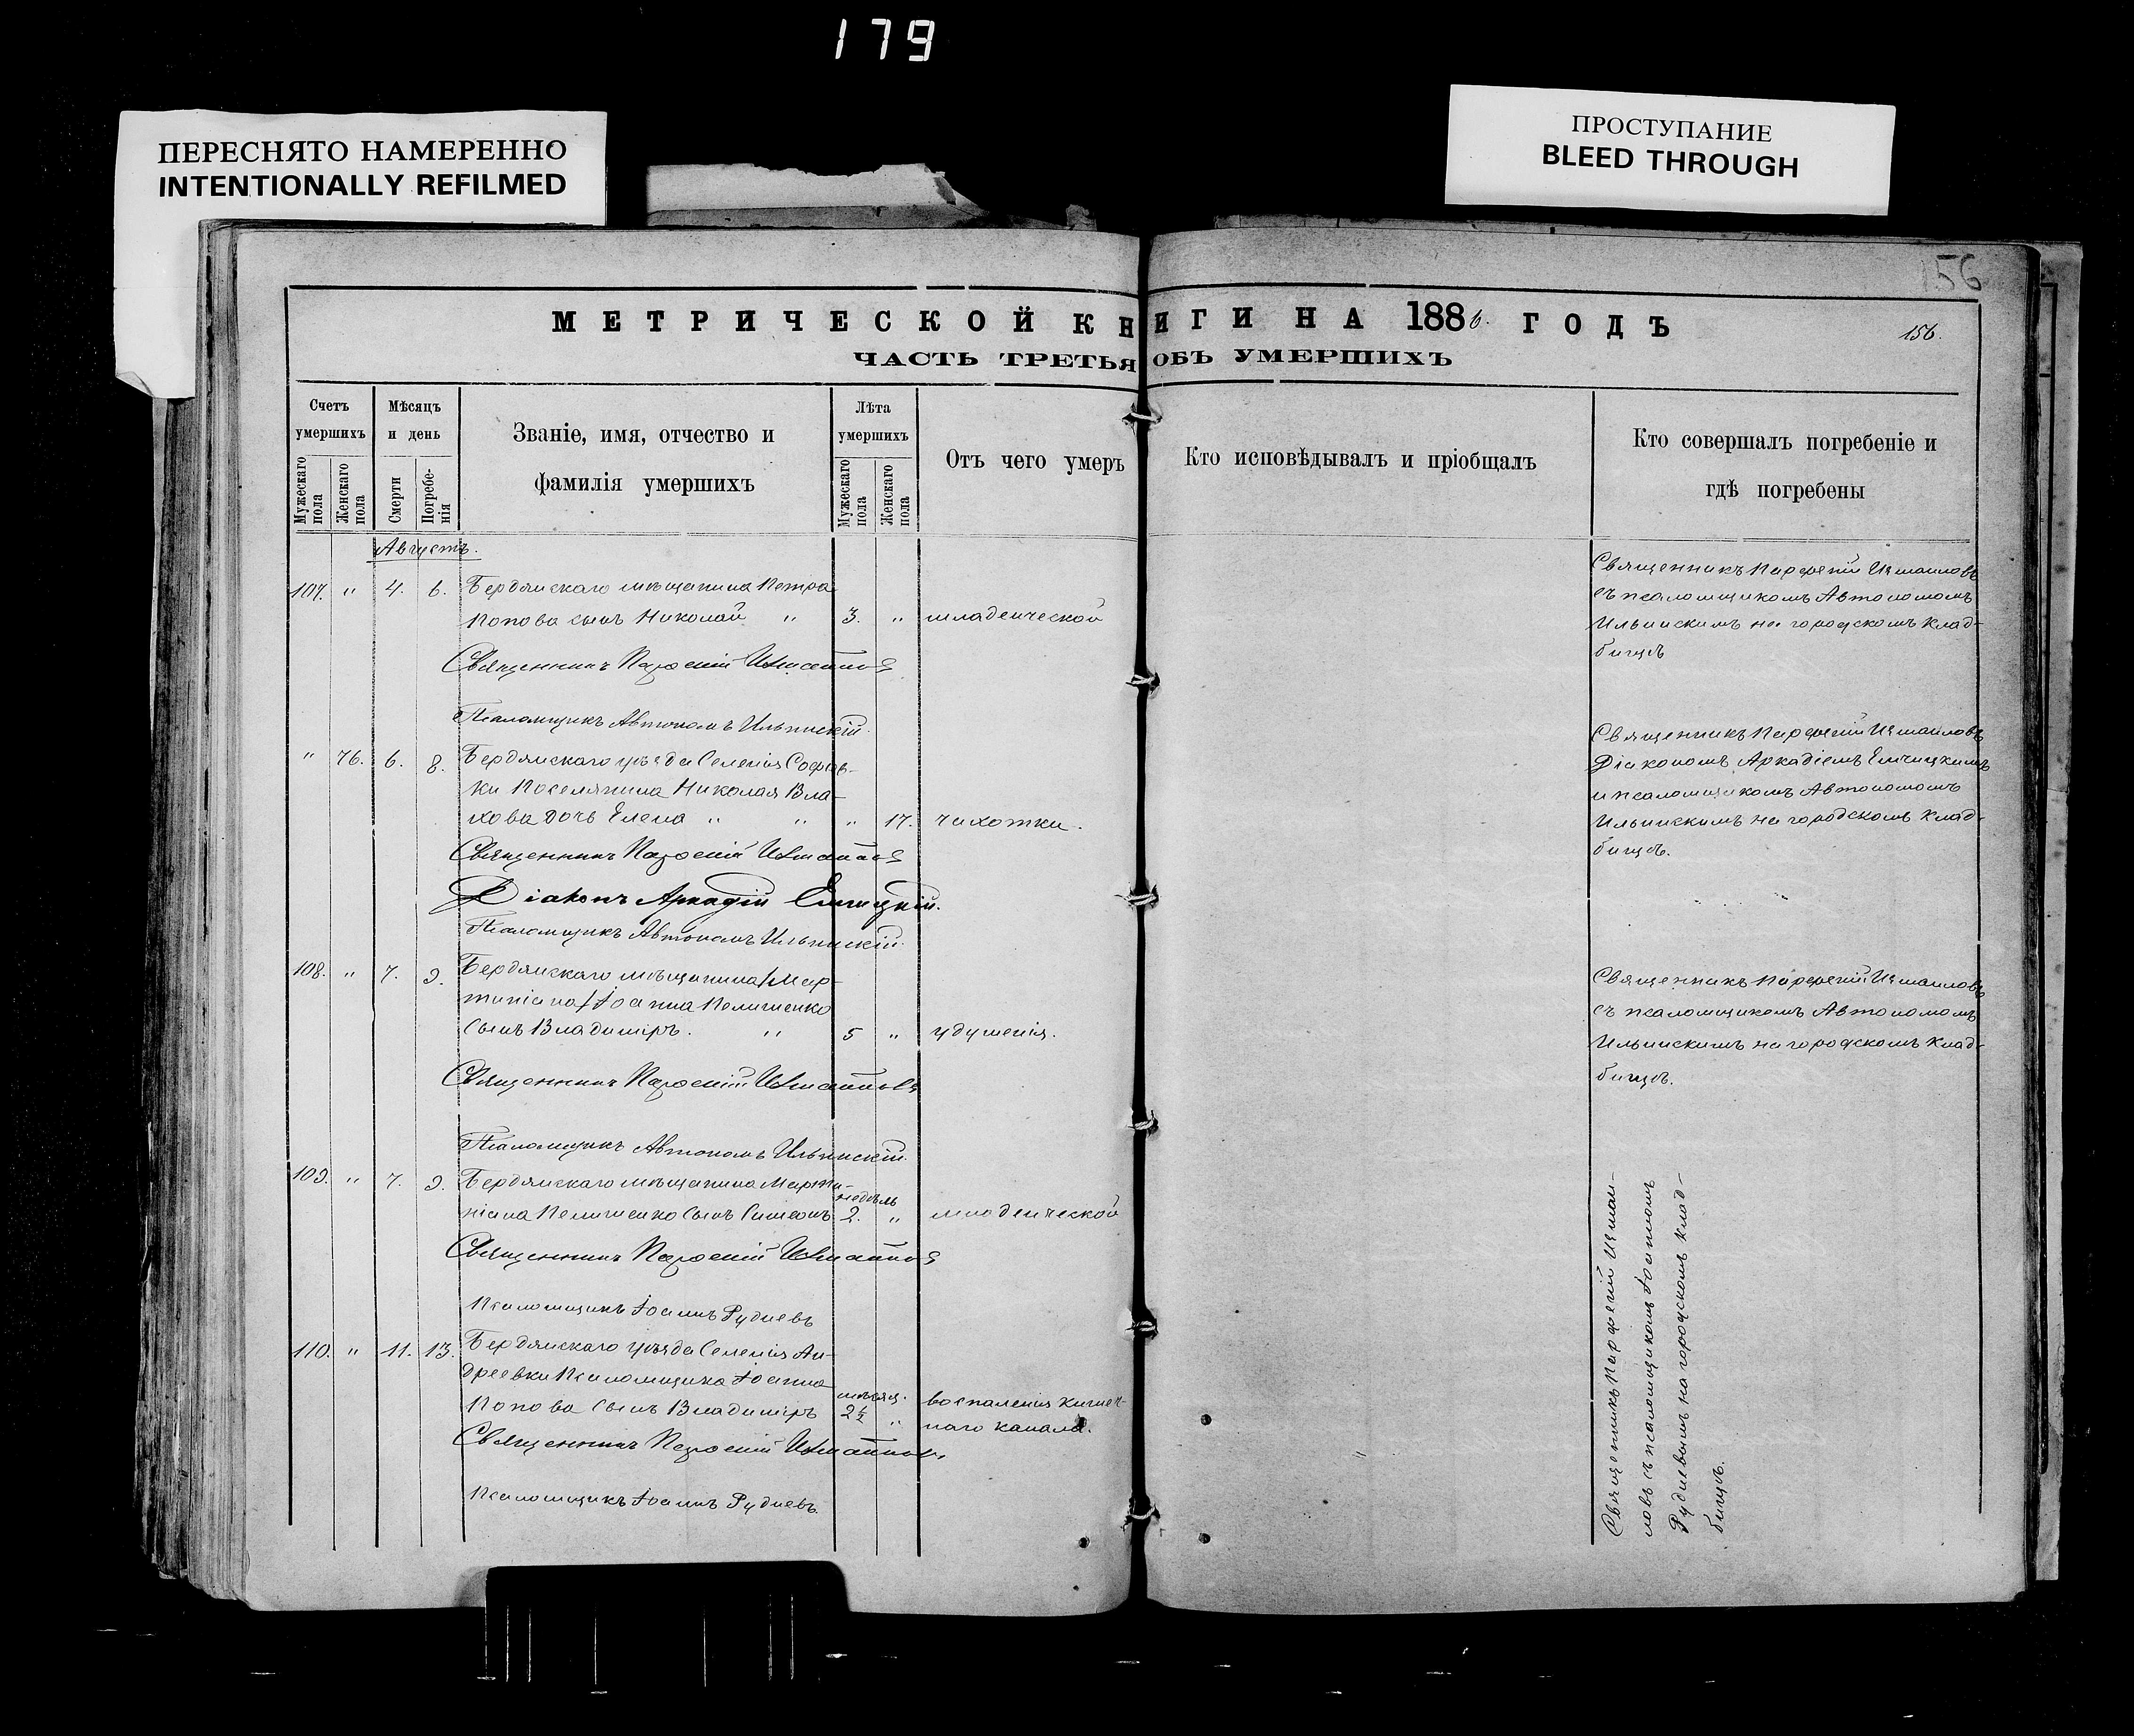 179
ПЕРЕСНЯТО НАМЕРЕННО
INTENTIONALLY REFILMED
ПРОСТУПАНИЕ
BLEED THROUGH
156
МЕТРИЧЕСКОЙ КНИГИ НА 1886. ГОДЪ
156.
ЧАСТЬ ТРЕТЬЯ ОБЪ УМЕРШИХЪ
Счетъ умершихъ
Мужескаго пола
Женскаго пола
Мѣсяцъ и день
Смерти
Погребенія
Званіе, имя, отчество и
фамилія умершихъ
Лѣта умершихъ
Мужескаго пола
Женскаго пола
Отъ чего умеръ
Кто исповѣдывалъ и пріобщалъ
Кто совершалъ погребеніе и
гдѣ погребены
Августъ.
107. " 4. 6. Бердянскаго мѣщанина Петра
Попова сынъ Николай " 3. " младенческой
Священникъ Парѳеній Измаиловъ
Псаломщикъ Автономъ Ильинскій.
Священникъ Парфеній Измаиловъ
съ псаломщикомъ Автономомъ
Ильинскимъ на городскомъ клад-
бищѣ
" 76. 6. 8. Бердянскаго уѣзда Селенія Софіев-
ки Поселянина Николая Вла-
хова дочь Елена " " " 17. чахотки.
Священникъ Парѳеній Измаиловъ
Діаконъ Аркадій Емчицкій.
Псаломщикъ Автономъ Ильинскій.
Священникъ Парфеній Измаиловъ
Діакономъ Аркадіемъ Емчицкимъ
и псаломщикомъ Автономомъ
Ильинскимъ на городскомъ клад-
бищѣ.
108. " 7. 9. Бердянскаго мѣщанина Мар-
тиніана Іоанна Пелишенко
сынъ Владиміръ. " 5 " удушенія.
Священникъ Парѳеній Измаиловъ
Псаломщикъ Автономъ Ильинскій.
Священникъ Парфеній Измаиловъ
съ псаломщикомъ Автономомъ
Ильинскимъ на городскомъ клад-
бищѣ.
109. " 7. 9. Бердянскаго мѣщанина Марти-
недѣль
ніана Пелишенко сынъ Симеонъ 2. " младенческой
Священникъ Парѳеній Измаиловъ
Псаломщикъ Іоаннъ Рудневъ
110. " 11. 13. Бердянскаго уѣзда Селенія Ан-
дреевки Псаломщика Іоанна
мѣсяц.
Попова сынъ Владиміръ 2½ " воспаленія кишеч-
наго канала.
Священникъ Парѳеній Измаиловъ
Псаломщикъ Іоаннъ Рудневъ.
Священникъ Парфеній Измаи-
ловъ съ псаломщикомъ Іоанномъ
Рудневымъ на городскомъ клад-
бищѣ.